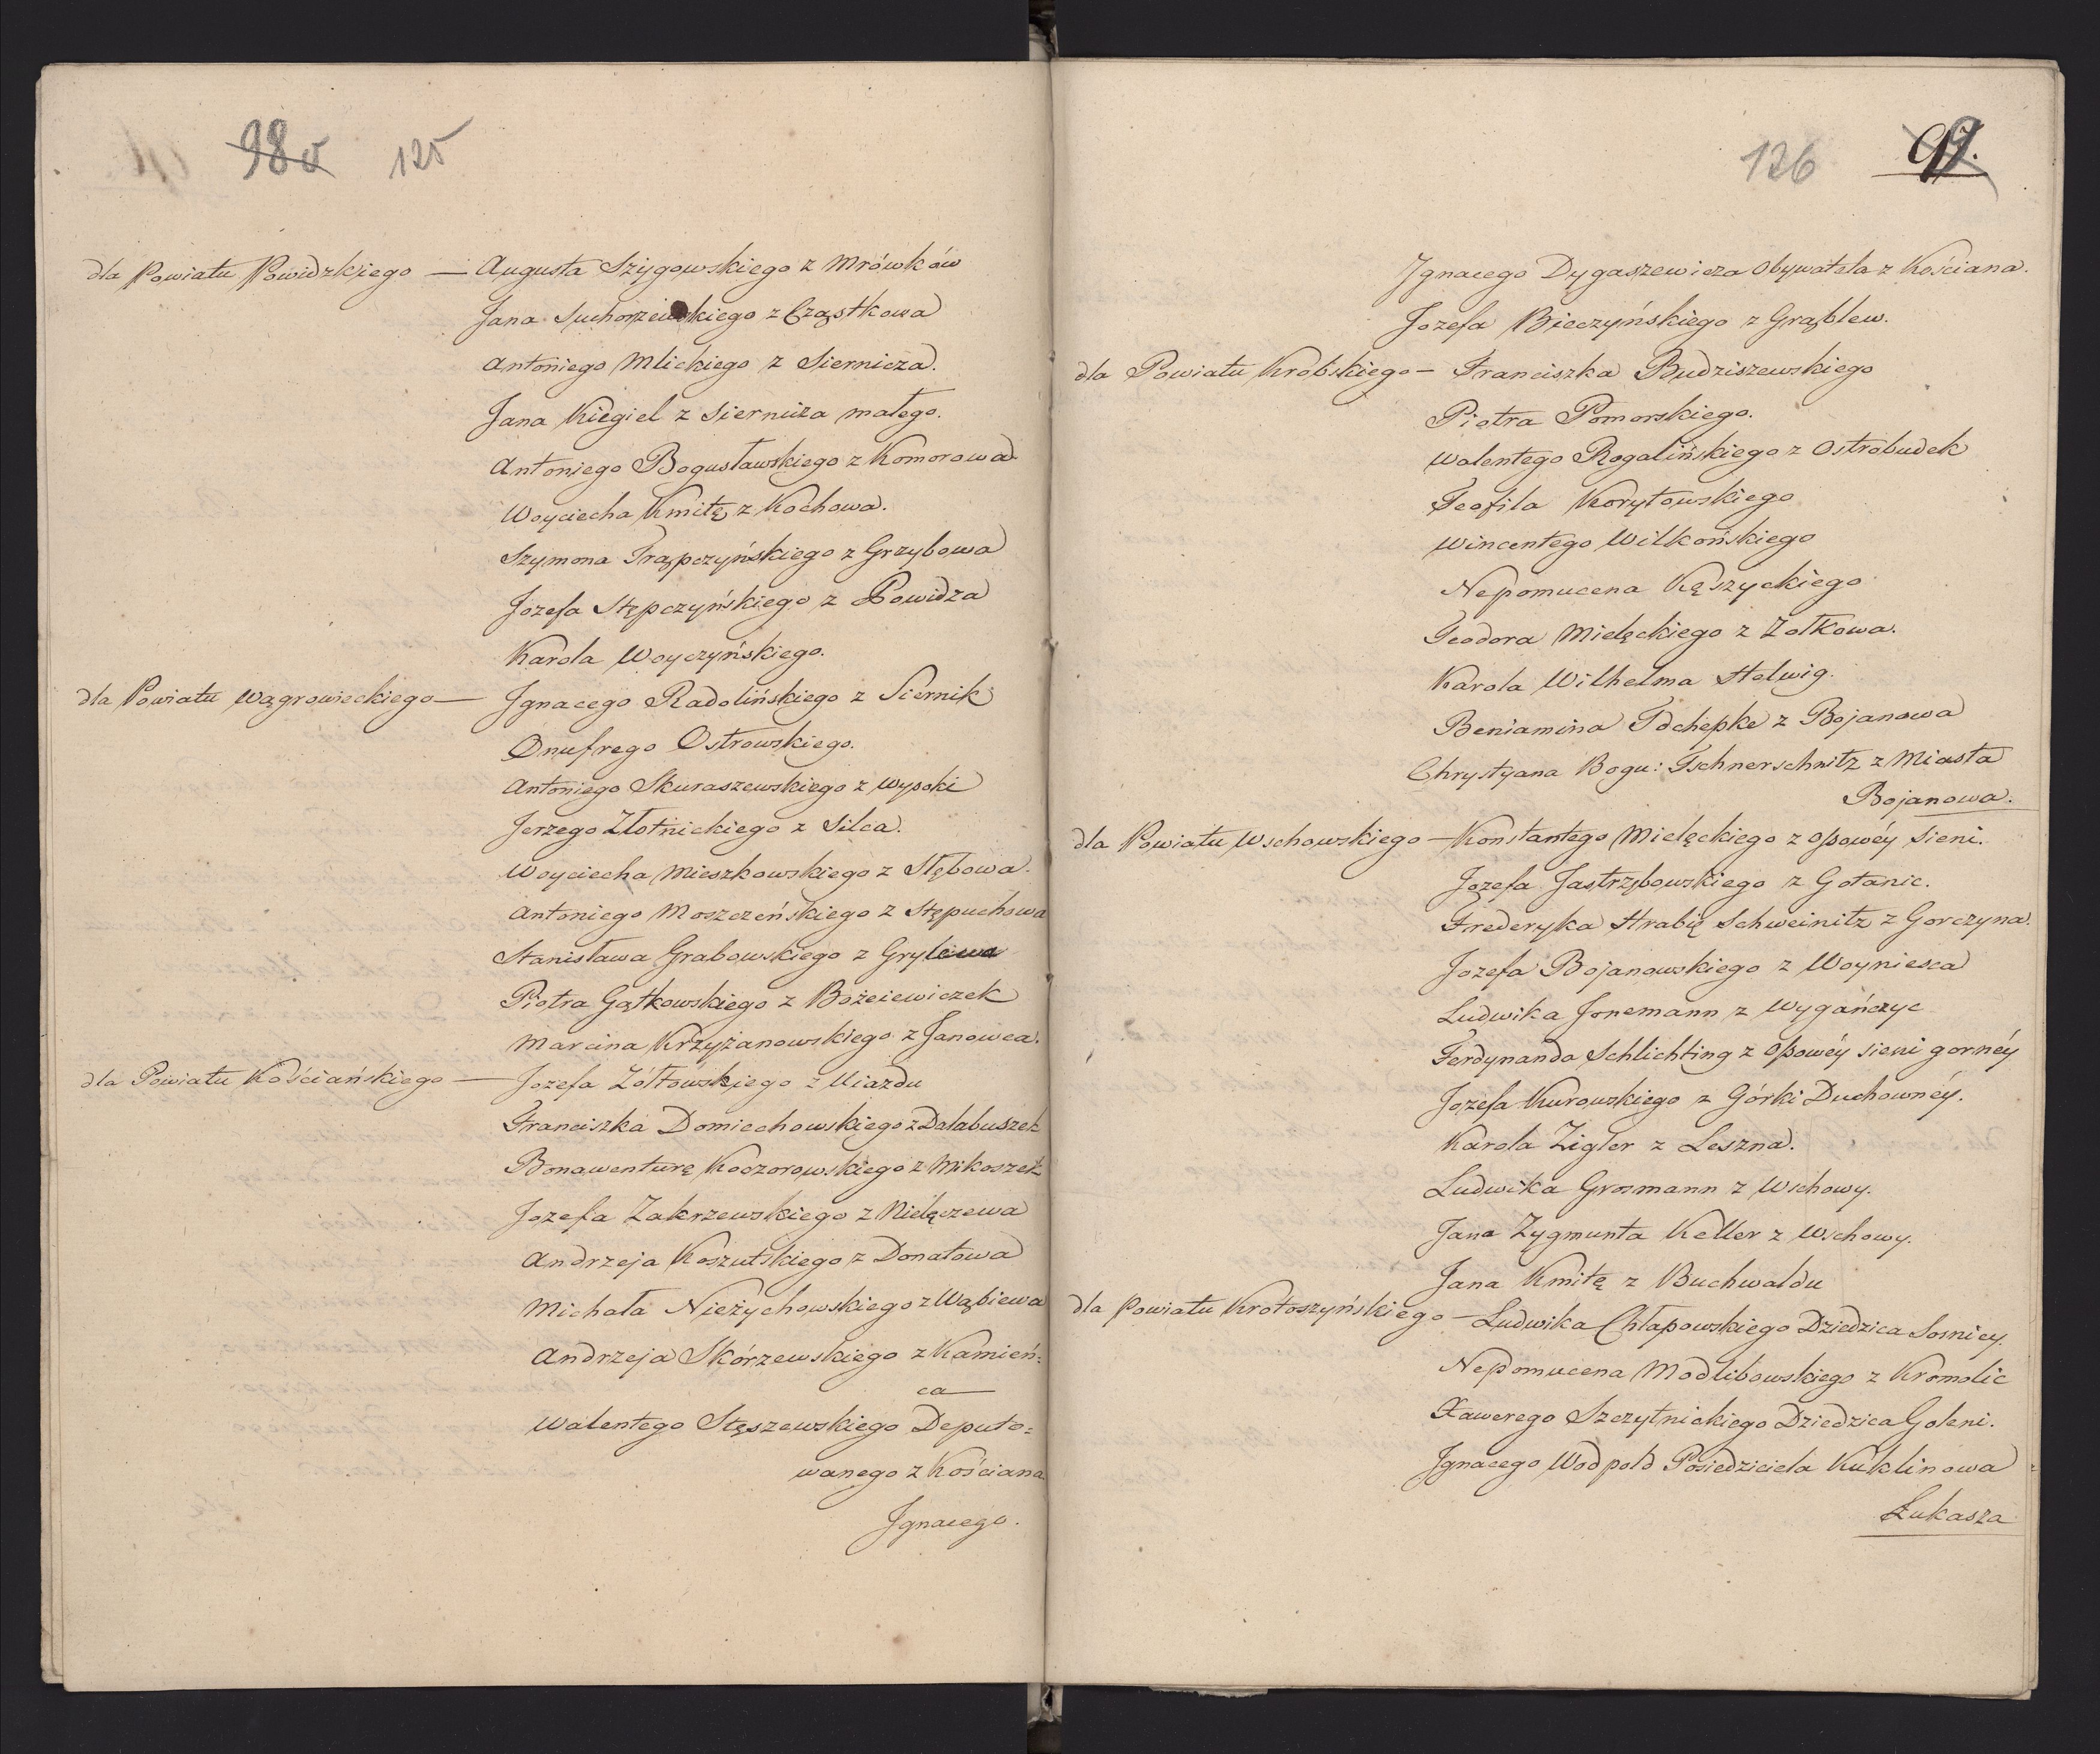 98v 125
dla Powiatu Powidzkiego — Augusta Szygowskiego z Mrówków
Jana Suchorzewskiego z Cząstkowa
Antoniego Mlickiego z Siernicza.
Jana Kiegiel z Siernicza małego.
Antoniego Bogusławskiego z Komorowa
Woyciecha Kmitę z Kochowa.
Szymona Trąpczyńskiego z Grzybowa
Jozefa Stępczyńskiego z Powidza
Karola Woyczyńskiego.
dla Powiatu Wągrowieckiego — Jgnacego Radolińskiego z Siernik
Onufrego Ostrowskiego.
Antoniego Skuraszewskiego z Wysoki
Jerzego Złotnickiego z Silca.
Woyciecha Mieszkowskiego z Stębowa.
Antoniego Moszczeńskiego z Stępuchowa
Stanisława Grabowskiego z Grylewa
Piotra Gątkowskiego z Bożeiewiczek
Marcina Krzyżanowskiego z Janowca.
dla Powiatu Kościańskiego — Jozefa Żółtowskiego z Uiazdu
Franciszka Domiechowskiego z Dalabuszek
Bonawenturę Koczorowskiego z Mikoszek
Jozefa Zakrzewskiego z Nielęczewa
Andrzeja Koszutskiego z Donatowa
Michała Nieżychowskiego z Wąbiewa
Andrzeja Skórzewskiego z Kamień=
ca
Walentego Stęszewskiego Deputo=
wanego z Kościana
Jgnacego.
126
Jgnacego Dygaszewicza Obywatela z Kościana.
Jozefa Bieczyńskiego z Grąblew.
dla Powiatu Krobskiego — Franciszka Budziszewskiego
Piotra Pomorskiego.
Walentego Rogalińskiego z Ostrobudek
Teofila Korytowskiego
Wincentego Wilkońskiego
Nepomucena Kęszyckiego
Teodora Mielęckiego z Zołkowa.
Karola Wilhelma Helwig.
Beniamina Tschepke z Bojanowa
Chrystyana Bogu: Tschnerschnitz z Miasta
Bojanowa.
dla Powiatu Wschowskiego — Konstantego Mielęckiego z Ossowéy Sieni.
Jozefa Jastrzębowskiego z Gołanic.
Frederyka Hrabię Schweinitz z Gorczyna.
Jozefa Bojanowskiego z Woyniesca
Ludwika Jonemann z Wygańczyc
Ferdynanda Schlichting z Ossowéy sieni gornéy
Jozefa Kurowskiego z Górki Duchownéy.
Karola Zigler z Leszna.
Ludwika Grosmann z Wschowy.
Jana Zygmunta Keller z Wschowy.
Jana Kmitę z Buchwaldu
dla Powiatu Krotoszyńskiego — Ludwika Chłapowskiego Dziedzica Sosnicy.
Nepomucena Modlibowskiego z Kromolic
Xawerego Szczytnickiego Dziedzica Goleni.
Jgnacego Wodpold Posiedziciela Kuklinowa
Łukasza